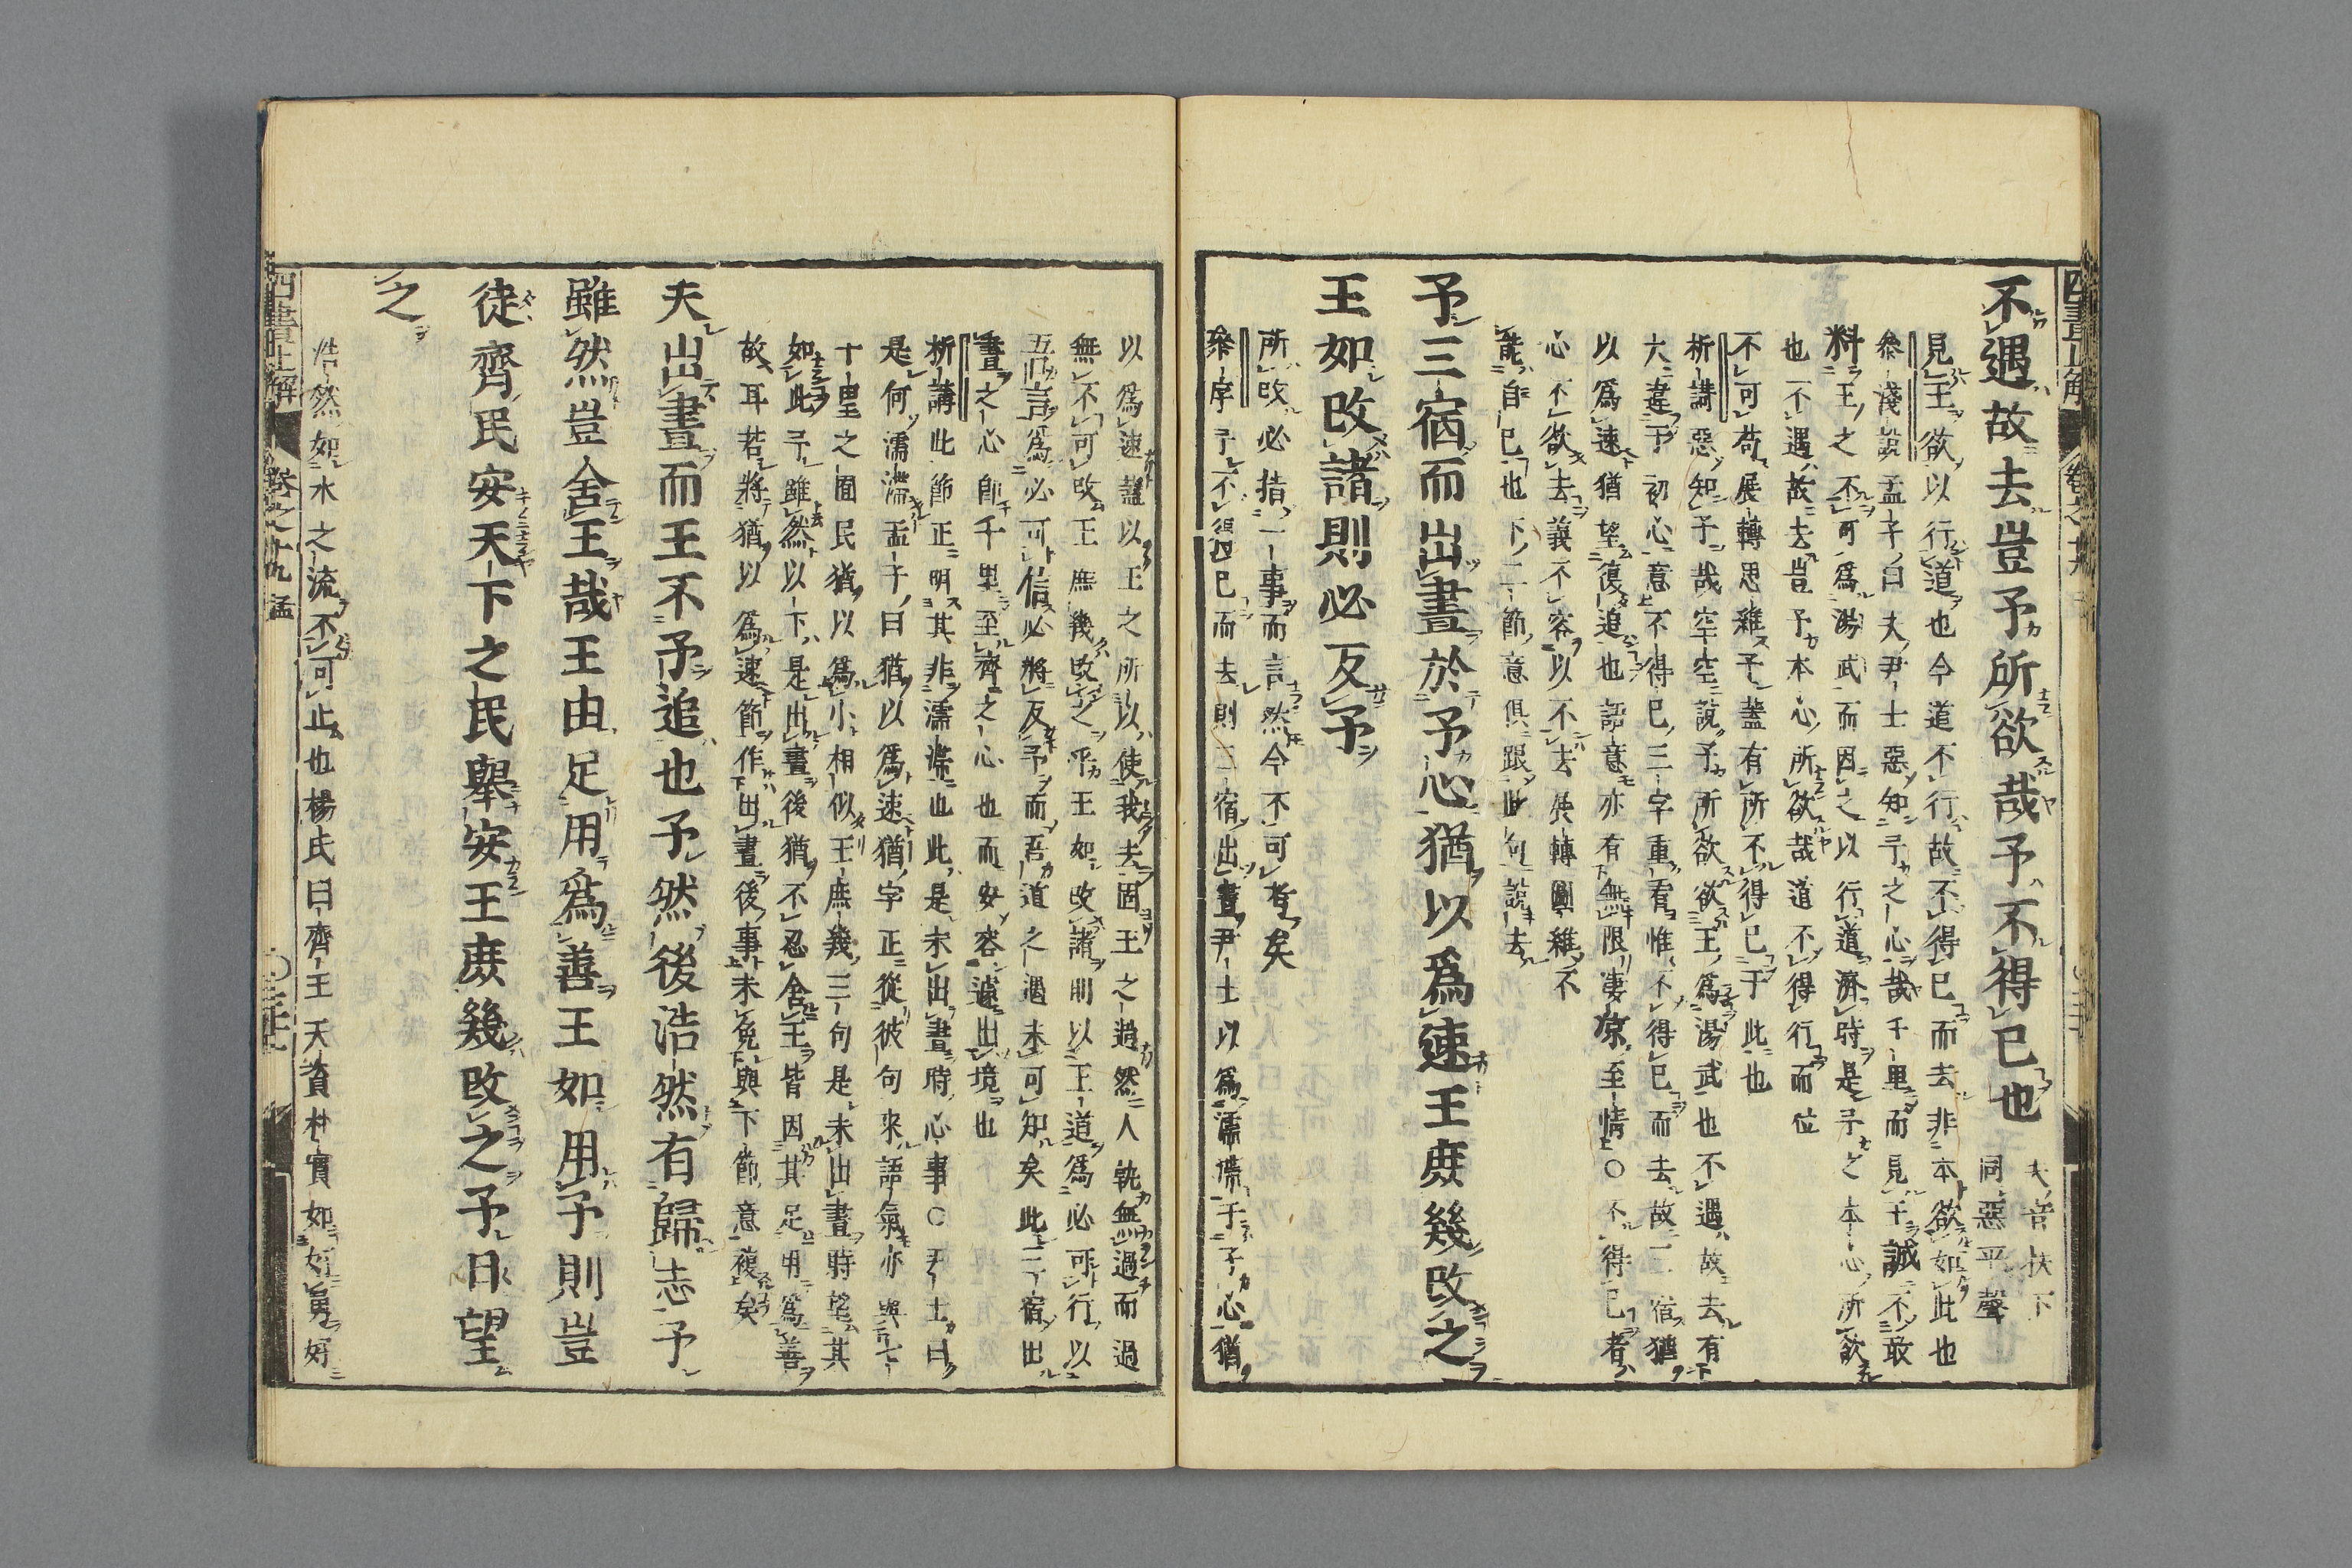 不遇故去豈予所欲哉予不得已也 夫音扶下
同惡平聲
見王欲以行道也今道不行故不得已而去非本欲如此也
參淺説孟子曰夫尹士惡知予之心哉千里而見王誠不敢
料王之不可爲湯武而因之以行道濟時是予之本心所欲
也不遇故去豈予本心所欲哉道不得行而位
不可苟展轉思維予蓋有所不得已于此也
析講惡知予哉空空説予所欲欲王爲湯武也不遇故去有
大違予初心意不得已三字重看惟不得已而去故三宿猶
以爲速猶望復追也語意亦有無限凄凉至情○不得已者
心不欲去義不容以不去矣轉圜雖不
能自已也下二節意俱跟此句説去
予三宿而出晝於予心猶以爲速王庶幾改之
王如改諸則必反予
所改必指一事而言然今不可考矣
參序予不得已而去則三宿出晝尹士以爲濡滯于予心猶
以爲速蓋以王之所以使我去固王之過然人孰無過而過
無不可改王庶幾改之乎王如改諸則以王道爲必可行以
吾言爲必可信必將反予而吾道之遇未可知矣此三宿出
晝之心即千里至齊之心也而安容遽出境也
析講此節正明其非濡滯也此是未出晝時心事○尹士曰
是何濡滯孟子曰猶以爲速猶字正從彼句來語氣亦與七
十里之囿民猶以爲小相似王庶幾三句是未出晝時望其
如此予雖然以下是出晝後猶不忍舍王皆因其足用爲善
故耳若將猶以爲速節作出晝後事未免與下節意複矣
夫出晝而王不予追也予然後浩然有歸志予
雖然豈舍王哉王由足用爲善王如用予則豈
徒齊民安天下之民舉安王庶幾改之予日望
之
浩然如水之流不可止也楊氏曰齊王天資朴實如好勇好
四書正解 卷之十九 孟